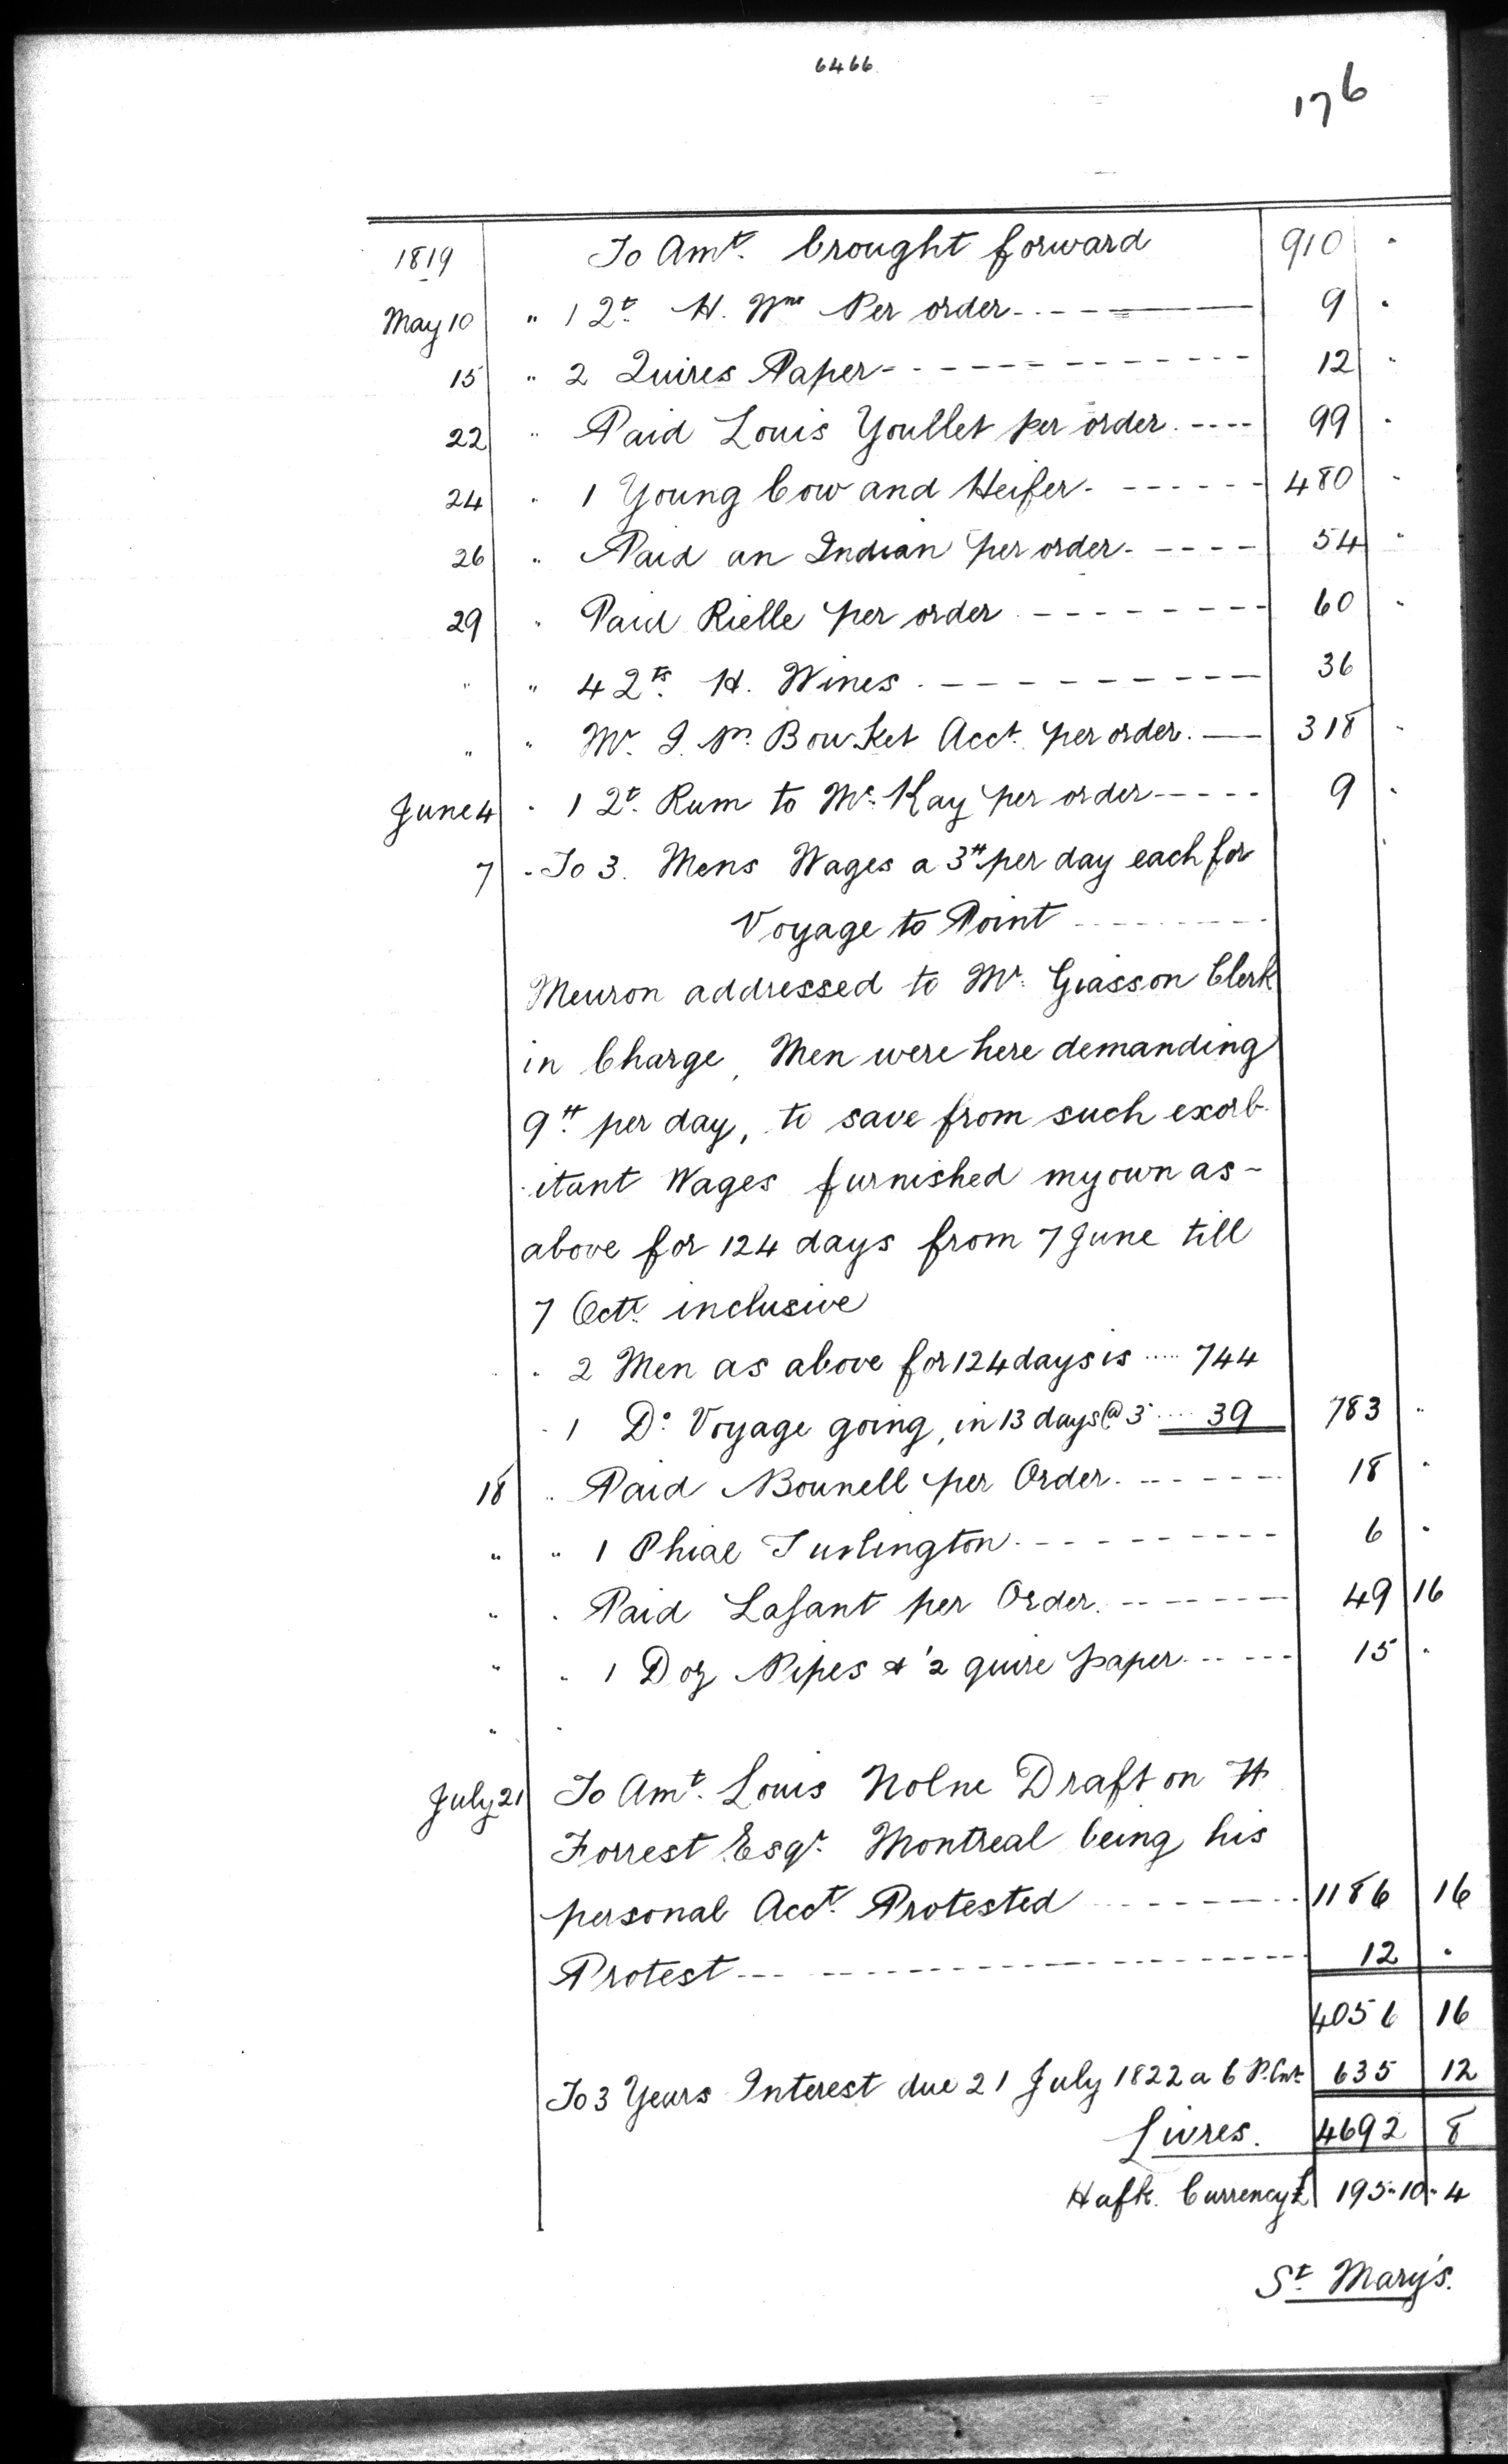 6466
176
1819 To Amt. brought forward 910 "
May 10 " 1 2t. H. Wne Per order 9 "
15 " 2 Quires Paper 12 "
22 " Paid Louis Youllet per order 99 "
24 " 1 Young Cow and Heifer 480 "
26 " Paid an Indian per order 54 "
29 " Paid Rielle per order 60 "
" " 4 2ts. H. Wines 36
" " Mr. J. Pn. Bouket Acct. per order 318 "
June 4 " 1 2t. Rum to Mc. Kay per order 9 "
7 " To 3. Mens Wages a 3tt per day each for
Voyage to Point
Meuron addressed to Mr. Giasson Clerk
in Charge, Men were here demanding
9tt per day, to save from such exorb-
-itant Wages furnished my own as-
above for 124 days from 7 June till
7 Octr. inclusive
" 2 Men as above for 124 days is 744
" 1 Do. Voyage going, in 13 days @ 3 39 783 "
18 " Paid Bounell per Order 18 "
" " 1 Phial Turlington 6 "
" " Paid Lafant per Order 49 16
" " 1 Doz Pipes & 2 quire paper 15 "
" "
July 21 To Amt. Louis Nolne Draft on H
Forrest Esqr. Montreal being his
personal Acct. Protested 1186 16
Protest 12 "
4056 16
To 3 Years Interest due 21 July 1822 a 6 P. Cnt. 635 12
Livres. 4692 8
Hafk. Currency £ 195"10"4
St. Mary's.